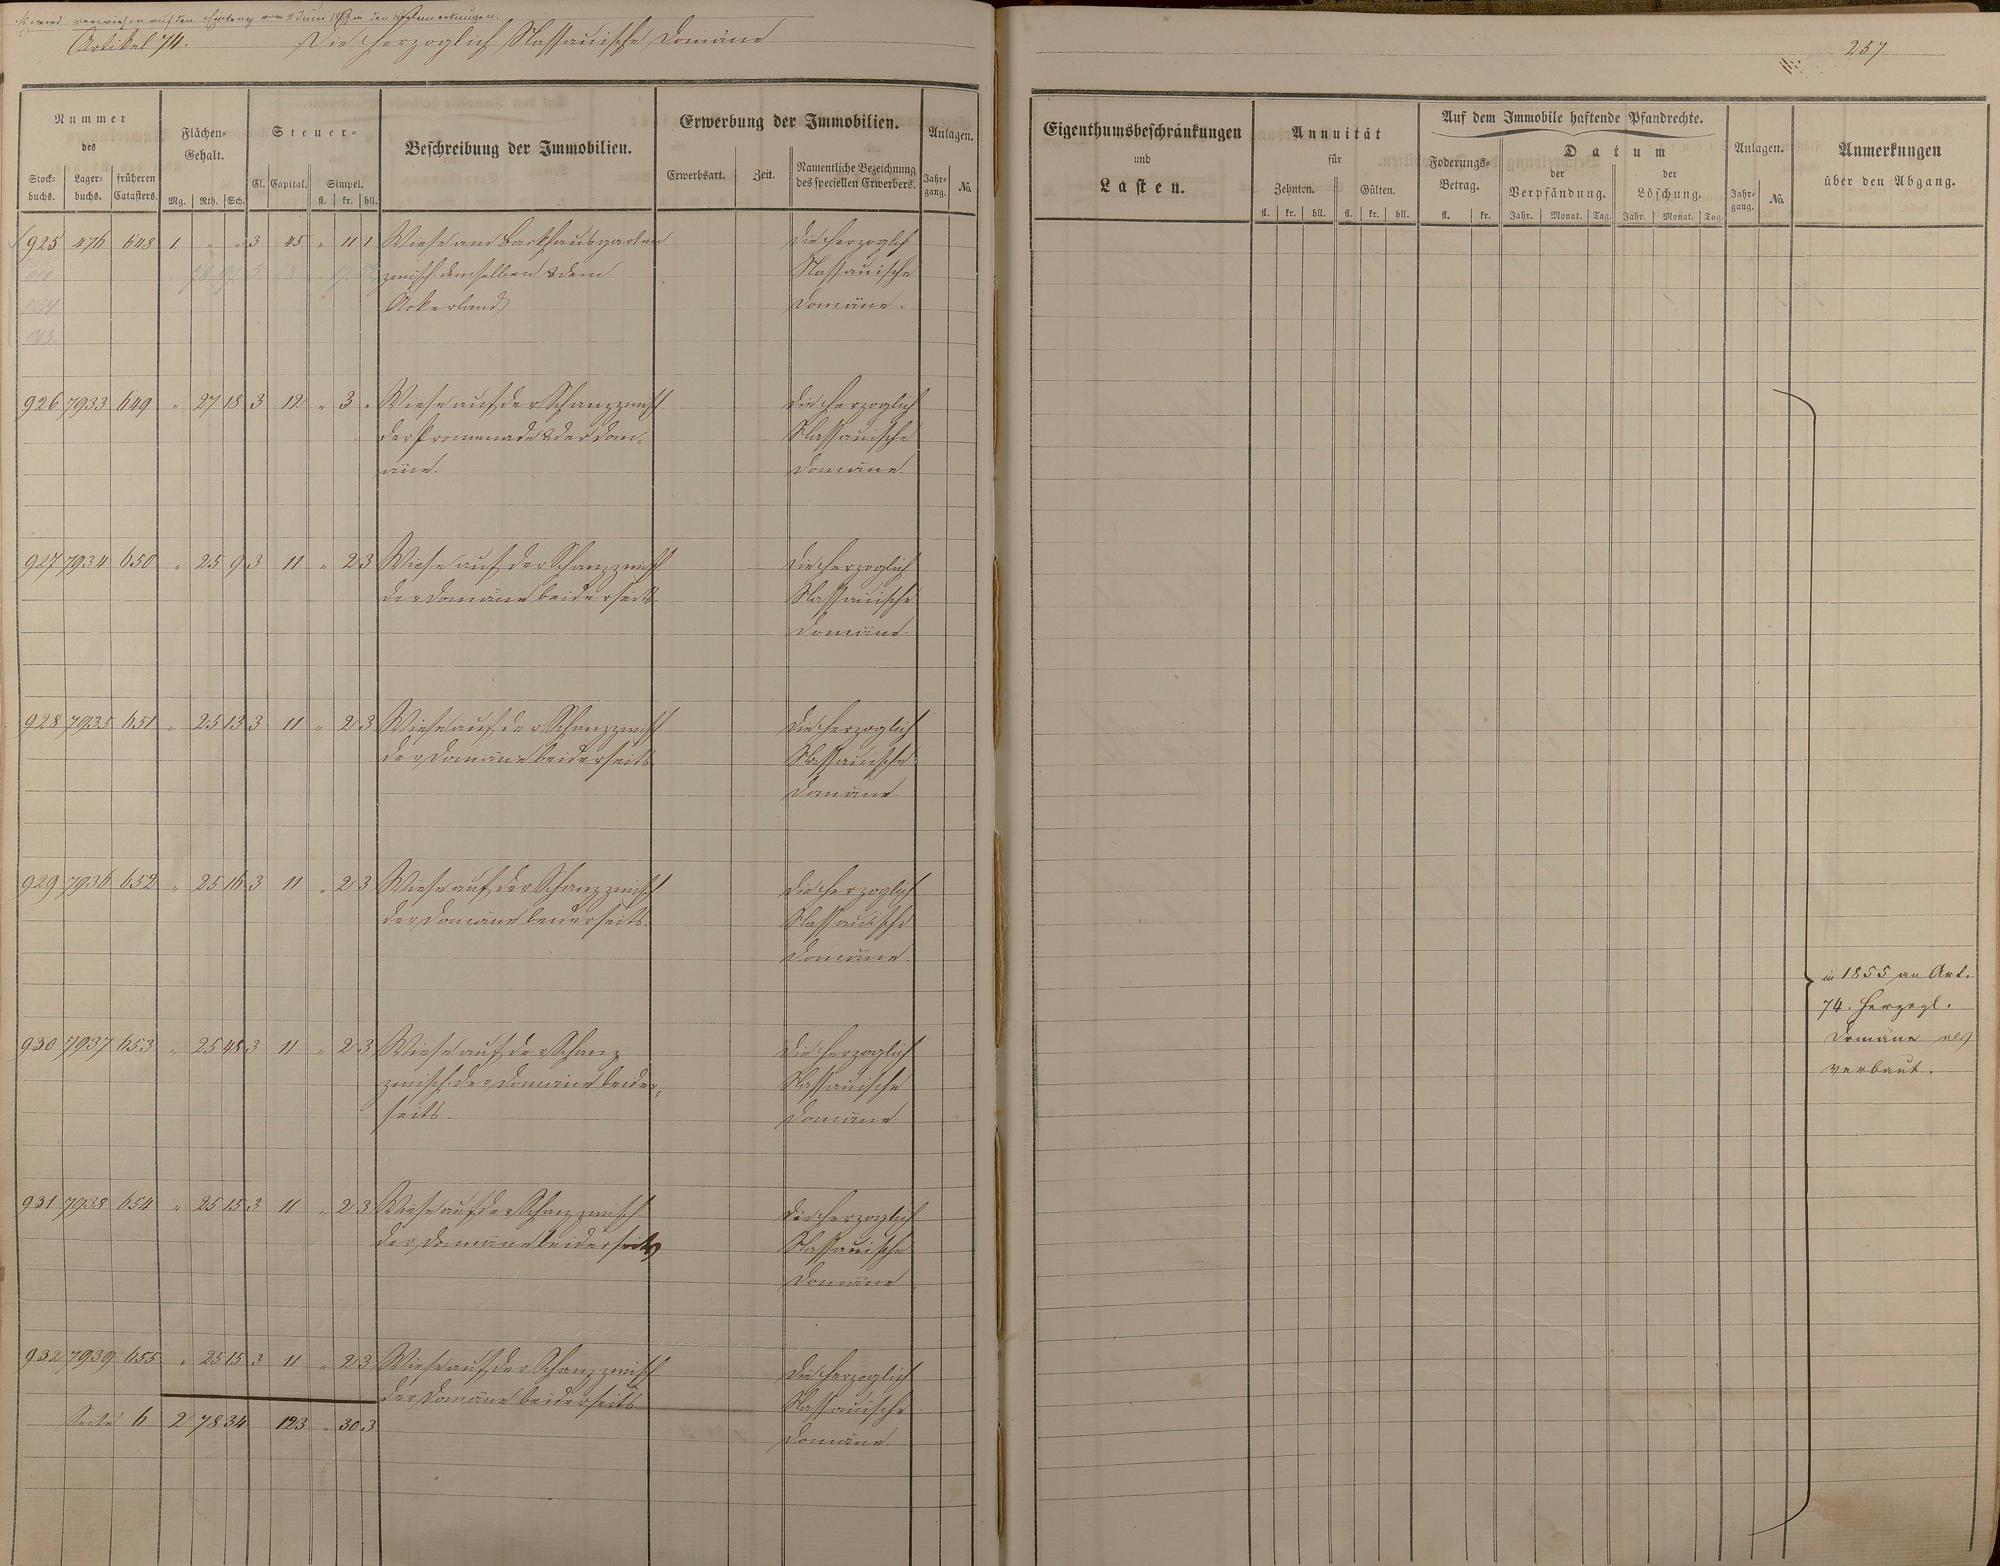 Es wird verwiesen auf den Eintrag vom 11 Juni in den Anmerkungen.
Artikel 74. Die Herzoglich Nassauische Domäne
257.
Nummer des
Stock-buchs. Lager-buchs. früheren Catasters.
Flächen-Gehalt.
Mg. Rth. Sch.
Steuer-
Cl. Capital. Simpel.
fl. kr. hll.
Beschreibung der Immobilien.
Erwerbung der Immobilien.
Erwerbsart. Zeit. Namentliche Bezeichnung des speciellen Erwerbers.
Anlagen.
Jahr-gang. No.
Eigenthumsbeschränkungen
und
Lasten.
Annuität
für
Zehnten. Gülten.
fl. kr. hll. fl. kr. hll.
Auf dem Immobile haftende Pfandrechte.
Foderungs-Betrag.
fl. kr.
Datum
der Verpfändung. der Löschung.
Jahr. Monat. Tag. Jahr. Monat. Tag.
Anlagen.
Jahr-gang. No.
Anmerkungen
über den Abgang.
925 476 648 1 " " 3 45 " 11 1 Wiese am Backhausgarten Die Herzoglich
zwisch. demselben & dem Nassauische
Ackerland Domäne.
926 7933 649 " 27 18 3 12 " 3 " Wiese auf der Schanz zwisch Die Herzoglich
der Promenade & der Dom- Nassauische
äne. Domäne.
927 7934 650 " 25 9 3 11 " 2 3 Wiese auf der Schanz zwisch Die Herzoglich
der Domäne beiderseits Nassauische
Domäne.
928 7935 651 " 25 13 3 11 " 2 3 Wiese auf der Schanz zwisch Die Herzoglich
der Domäne beiderseits Nassauische
Domäne.
929 7936 652 " 25 16 3 11 " 2 3 Wiese auf der Schanz zwisch Die Herzoglich
der Domäne beiderseits. Nassauische
Domäne.
in 1855 an Art.
74. Herzogl.
Domäne als
verbaut.
930 7937 653 " 25 48 3 11 " 2 3 Wiese auf der Schanz Die Herzoglich
zwisch. der Domäne beider- Nassauische
seits. Domäne
931 7938 654 " 25 15 3 11 " 2 3 Wiese auf der Schanz zwisch Die Herzoglich
der Domäne beiderseits Nassauische
Domäne
932 7939 655 " 25 15 3 11 " 2 3 Wiese auf der Schanz zwisch Die Herzoglich
der Domäne beiderseits Nassauische
Seite 6 2 78 34 123 " 30 3 Domäne.